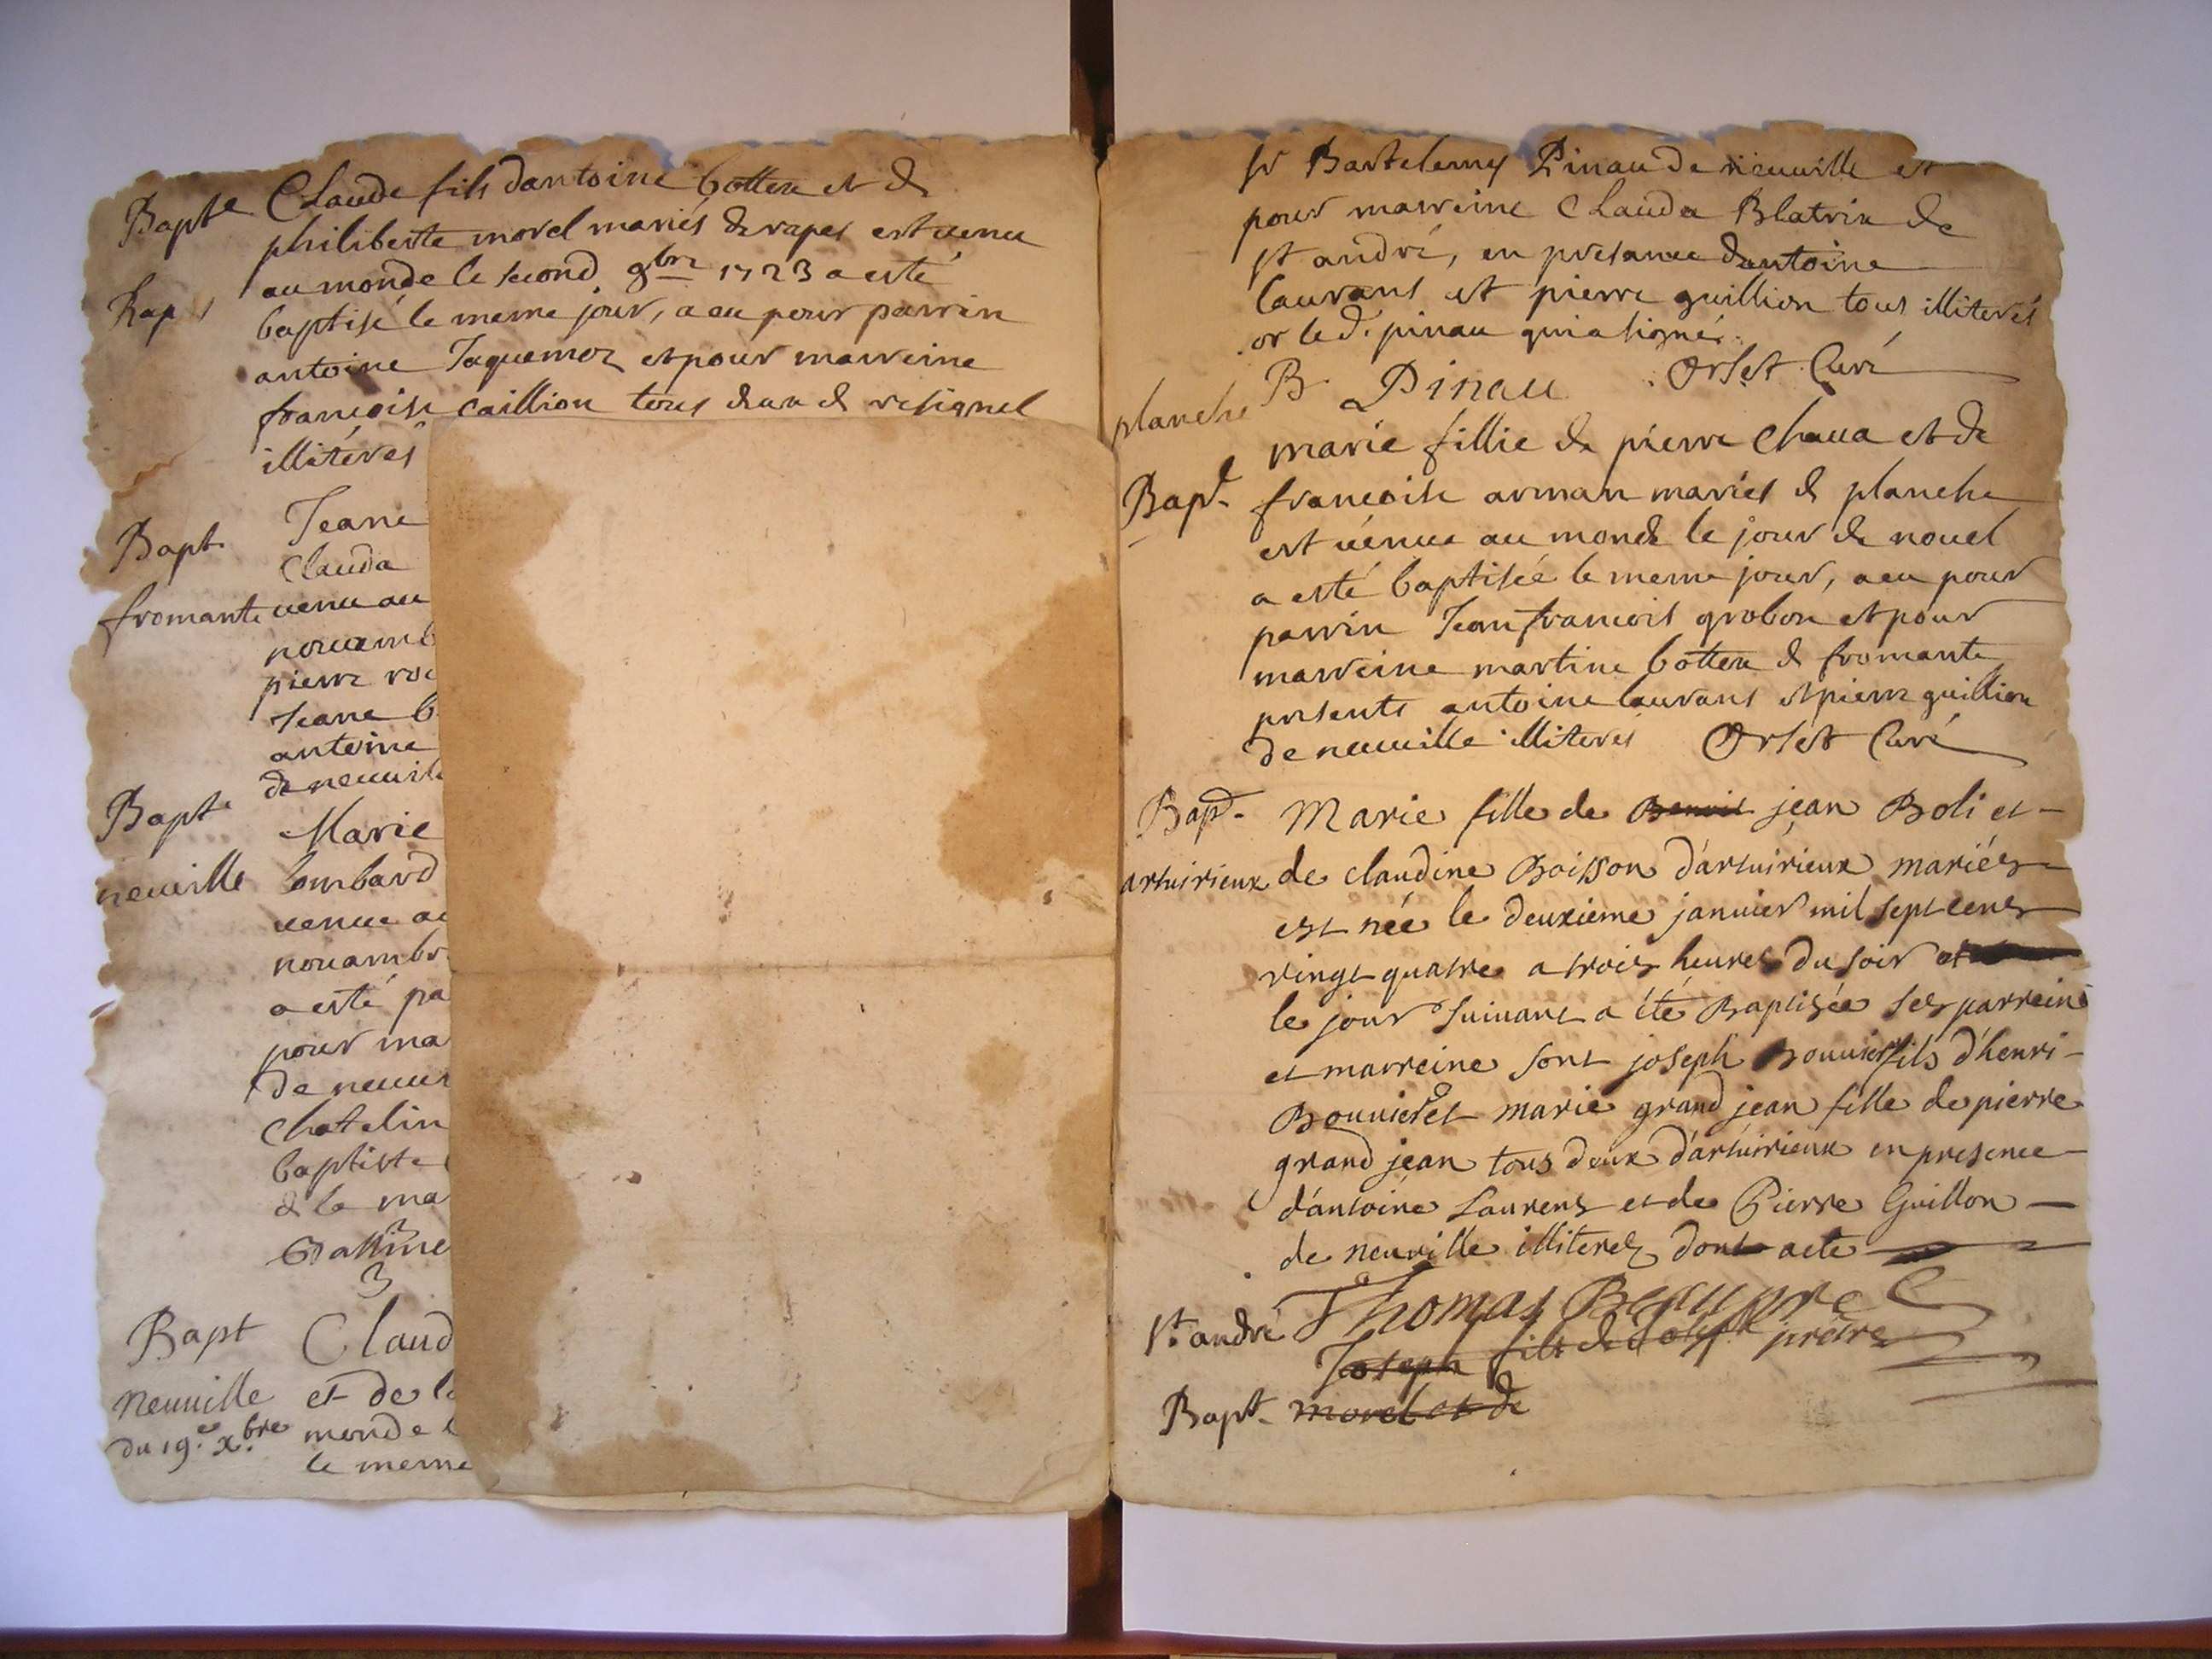 Bapte Claude fils dantoine bottex et de
philiberte morel mariés de rapes est venu
au monde le second 9bre 1723 a esté
Rapes
baptisé le meme jour, a eu pour parrin
antoine Jaquemoz et pour marreine
francoise caillion tous deux de resignel
illiterés
Bapt. Jeane
Clauda
fromante venu au
nouemb
pierre roc
Jeane b
antoine
de neuuill
Bapt. Marie
neuuille lombard
venue au
nouambr
a esté pa
pour ma
de neuui
Chatelin
baptiste
de la ma
Bapt Claud
Neuuille et de la
du 19e. xbre monde l
le meme
sr Bartelemy Pinau de neuuille et
pour marreine Clauda Blatrix de
st andré, en presance dantoine
laurans et pierre guillion tous illiterés
or le d. pinau qui a signé.
B Pinau Orset Curé
planche
marie fillie de pierre Chaua et de
Bapt. francoise arman mariés de planche
est uénue au monde le jour de nouel
a esté baptisée le meme jour, a eu pour
parrin Jean francois grobon et pour
marreine martine bottex de fromante
presents antoine laurans et pierre guillion
de neuuille illiterés Orset Curé
Bapt. Marie fille de Benoit jean Boli et
artuirieux de claudine Boisson d'artuirieux mariés
est née le deuxieme januier mil sept cens
vingt quatre a trois heures du soir et
le jour suiuant a été Baptisée ses parrein
et marreine sont joseph Bouuier fils d'henri
Bouuier et marie grand jean fille de pierre
grand jean tous deux d'artuirieux en presence
d'antoine Laurens et de Pierre Guillon
de neuuille illiterez dont acte
Thomas Beaupre
prètre
st. andré Joseph fils de Joseph
Bapt. morel et de